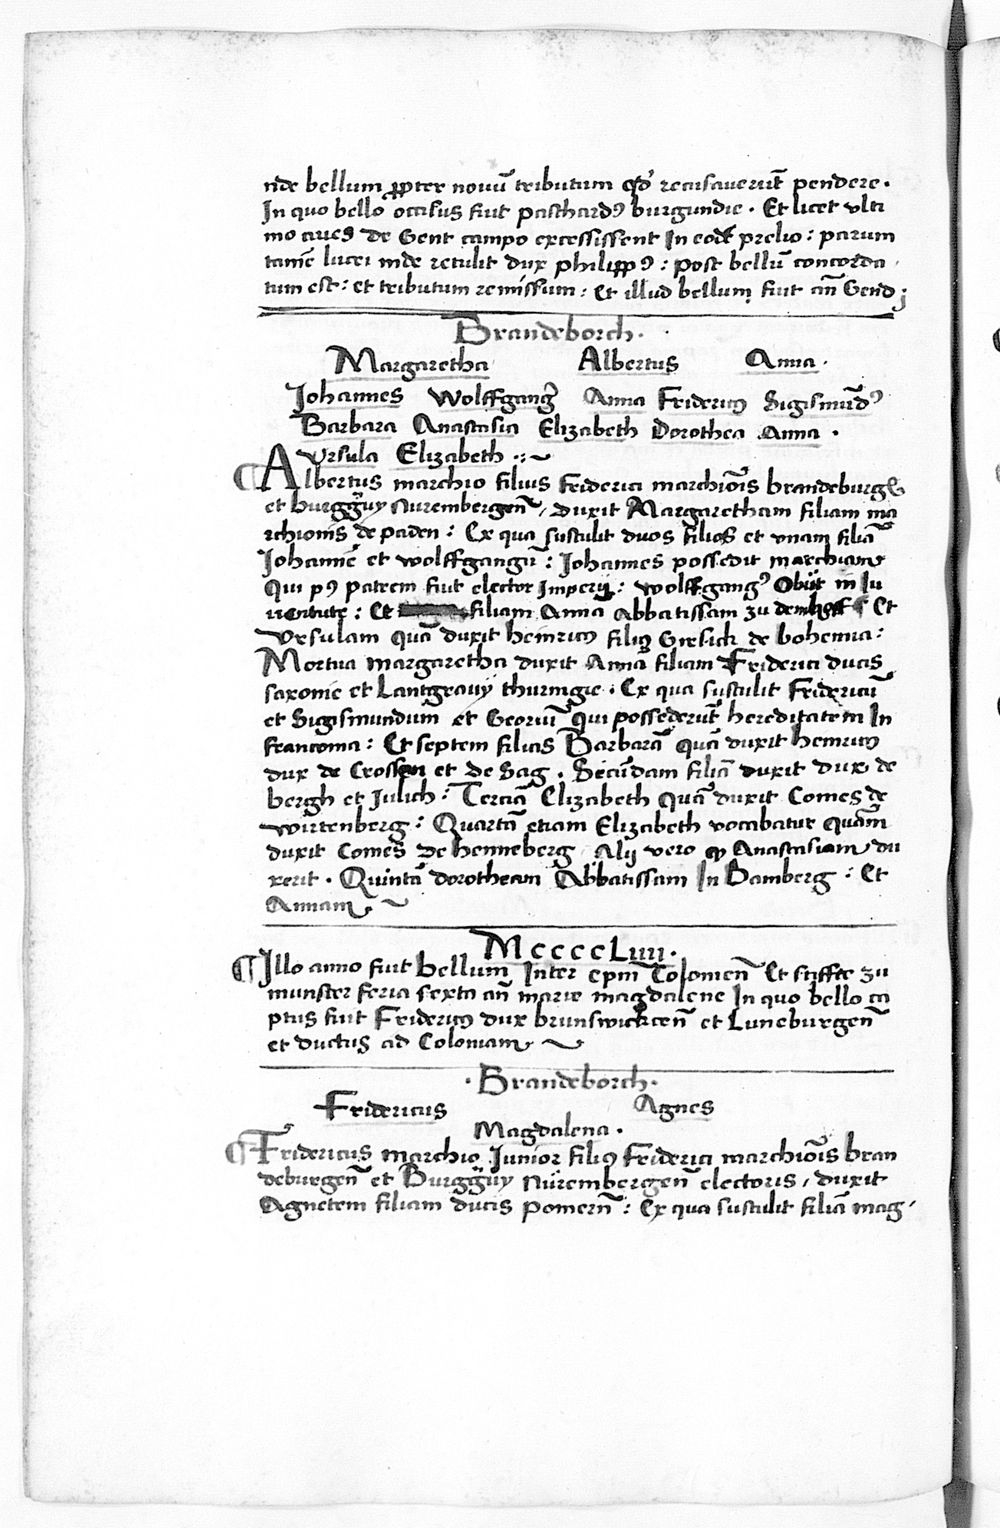 nde bellum ꝓpter nouū tributum qđ recusaverūt pendere .
In quo bello occisus fuit pasthardꝰ burgundie . Et licet vlti
mo ciues de Gent campo excessissent In eodē prelio : parum
tamē lucri inde retulit dux philippꝰ : post bellū concorda
tum est : et tributum remissum : Et illud bellum fuit an̄ Gend
Brandeborch .
Margaretha Albertus Anna .
Johannes Wolffgangꝰ Anna Fridericꝰ Sigismūdꝰ
Barbara Anastasia Elizabeth Dorothea Anna .
Vrsula Elizabeth
¶ Albertus marchio filius Friderici marchiōis brandeburgen̄
et burgg̈uy Nurembergen̄ / duxit Margaretham filiam ma
rchionis de paden : Ex qua sustulit duos filios et vnam filiā
Johannē et wolffgangū : Johannes possedit marchiam
Qui pꝰ patrem fuit elector Imperij : wolffgangꝰ Obijt in Iu
uentute : Et filiam Anna abbatissam zu demhoff ¶ Et
Vrsulam quā duxit heinricꝰ filiꝰ Girsick de bohemia :
Mortua margaretha duxit Annā filiam Friderici ducis
saxonie et Lantgrauij thuringie . Ex qua sustulit Fridericū
et Sigismundum et Georiū qui possederūt hereditatem In
franconia : Et septem filias Barbarā quā duxit heinricꝰ
dux de Crossen et de Sag . Secūdam filiā duxit dux de
bergh et Julich : Terciā Elizabeth Quā duxit Comes de
wirtenberg : Quartā etiam Elizabeth vocabatur quām
duxit Comes de henneberg Alij vero ꝙ Anastasiam du
xerit . Quintā dorotheam Abbatissam In Bamberg : Et
Annam
MccccLiiii .
¶ Illo anno fuit bellum Inter epm̄ Colonien̄ Et stiffte zu
munster feria sexta an̄ marie magdalene In quo bello ca
ptus fuit Fridericꝰ dux brunswickcen̄ et Luneburgen̄
et ductus ad Coloniam
. Brandeborch .
Fridericus Agnes
Magdalena .
¶ Fridericus marchio Junior filiꝰ Friderici marchiōis bran
deburgen̄ et Burgg̈uy Nürembergen̄ electoris / duxit
Agnetem filiam ducis pomern̄ : Ex qua sustulit filiā mag